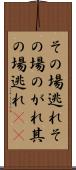 その場逃れそ
の場のがれ其
の場逃れ((